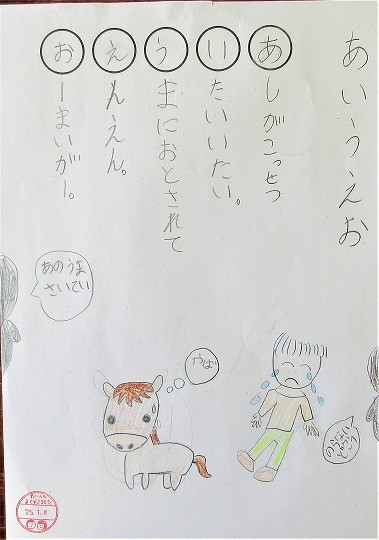 あいうえお
あしがこっせつ
いたいいたい。
うまにおとされて
ええんえん。
おーまいがー。
あのうま
さいてい
やば
25.1.8